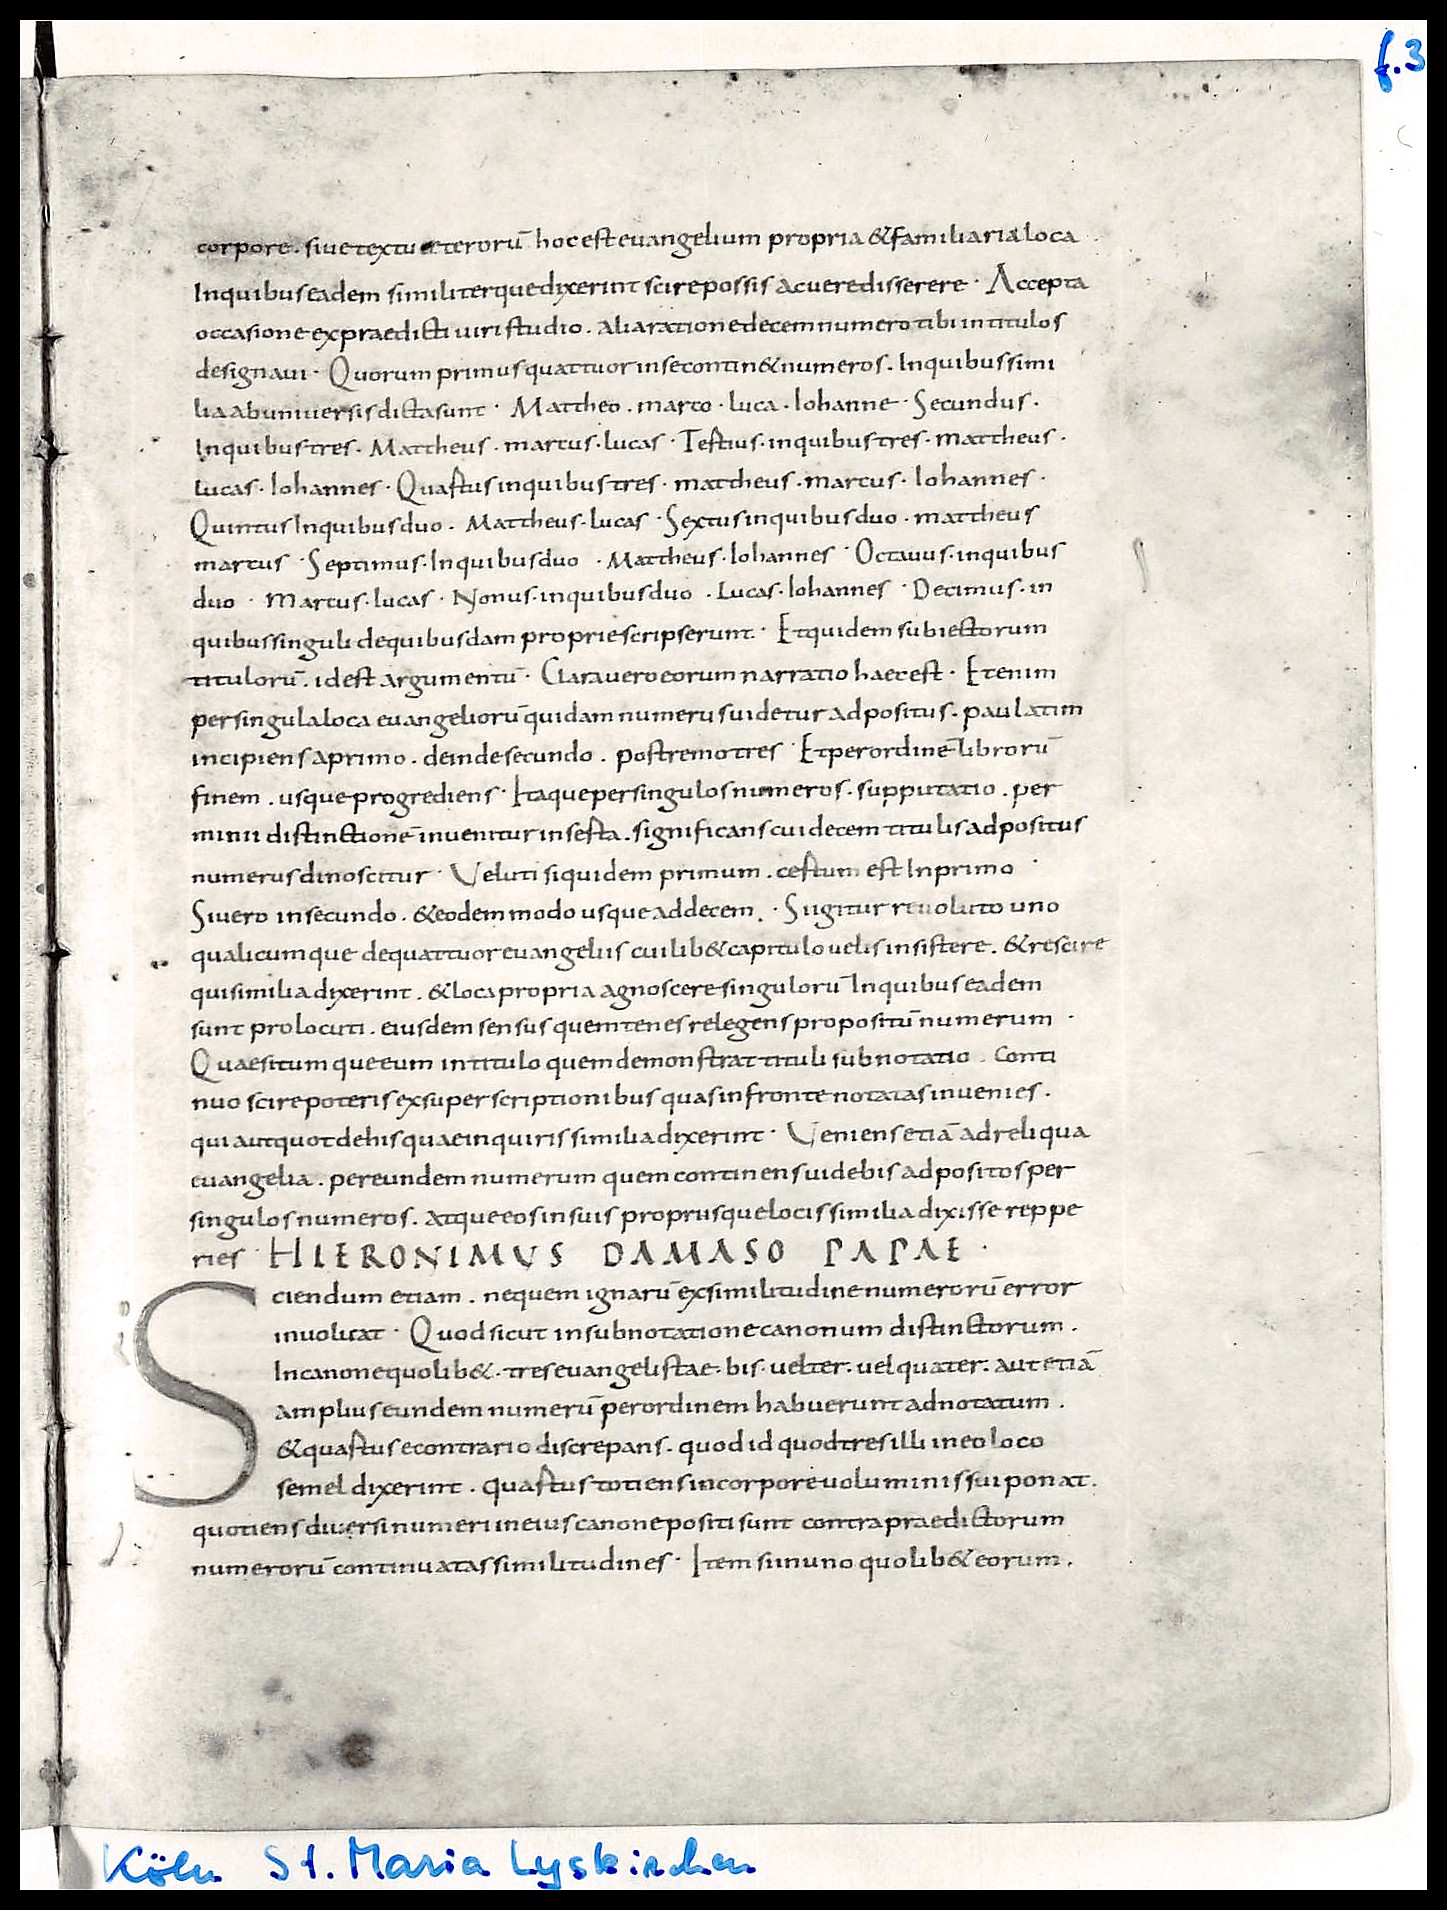 f.3
corpore. siue textu eterorū hoc est euangelium propria & familiaria loca
Inquibus eadem similiterque dixerint scire possis acuere disserere · Accepta
occasione ex praedicti uiri studio. alia ratione decem numero tibi in titulos
designaui · Quorum primus quattuor in se contin& numeros. Inquibus simi
lia ab uniuersis dicta sunt · Mattheo. marco · luca · Iohanne · Secundus.
Inquibus tres. Mattheus. marcus. lucas · Tertius. inquibus tres. mattheus.
lucas. Iohannes · Quartus inquibus tres. mattheus. marcus. Iohannes.
Quintus Inquibus duo. Mattheus. lucas · Sextus inquibus duo. mattheus
marcus · Septimus. Inquibus duo · Mattheus. Iohannes · Octauus. inquibus
duo · Marcus. lucas · Nonus. inquibus duo. Lucas. Iohannes · Decimus. in
quibus singuli de quibusdam proprie scripserunt · Et quidem subiectorum
titulorū. id est argumentū · Clara uero eorum narratio haec est · Etenim
per singula loca euangeliorū quidam numerus uidetur adpositus. paulatim
incipiens a primo. deinde secundo. postremo tres · Et per ordinē librorū
finem. usque progrediens · Itaque per singulos numeros. supputatio. per
minii distinctionē inuenitur inserta. significans cui decem titulis adpositus
numerus dinoscitur · Veluti siquidem primum. certum est In primo ·
Si uero in secundo. & eodem modo usque ad decem. · Si igitur reuoluto uno
qualicumque de quattuor euangeliis cuilib& capitulo uelis insistere. & rescire
qui similia dixerint. & loca propria agnoscere singulorū Inquibus eadem
sunt prolocuti. eiusdem sensus quem tenes relegens propositū numerum ·
Quaesitumque eum in titulo quem demonstrat tituli subnotatio. Conti
nuo scire poteris ex superscriptionibus quas in fronte notatas inuenies.
qui aut quot de his quae inquiris similia dixerint · Veniens etiā ad reliqua
euangelia. per eundem numerum quem continens uidebis adpositos per
singulos numeros. atque eos in suis propriisque locis similia dixisse reppe
ries · HIERONIMUS DAMASO PAPAE ·
Sciendum etiam. ne quem ignarū ex similitudine numerorū error
inuoluat · Quod sicut in subnotatione canonum distinctorum.
In canone quolib&. tres euangelistae. bis. uel ter. uel quater. aut etiā
amplius eundem numerū per ordinem habuerunt adnotatum.
& quartus econtrario discrepans. quod id quod tres illi in eo loco
semel dixerint. quartus totiens in corpore uoluminis sui ponat.
quotiens diuersi numeri in eius canone positi sunt contra praedictorum
numerorū continuatas similitudines · Item si in uno quolib& eorum.
Köln St. Maria Lyskirchen